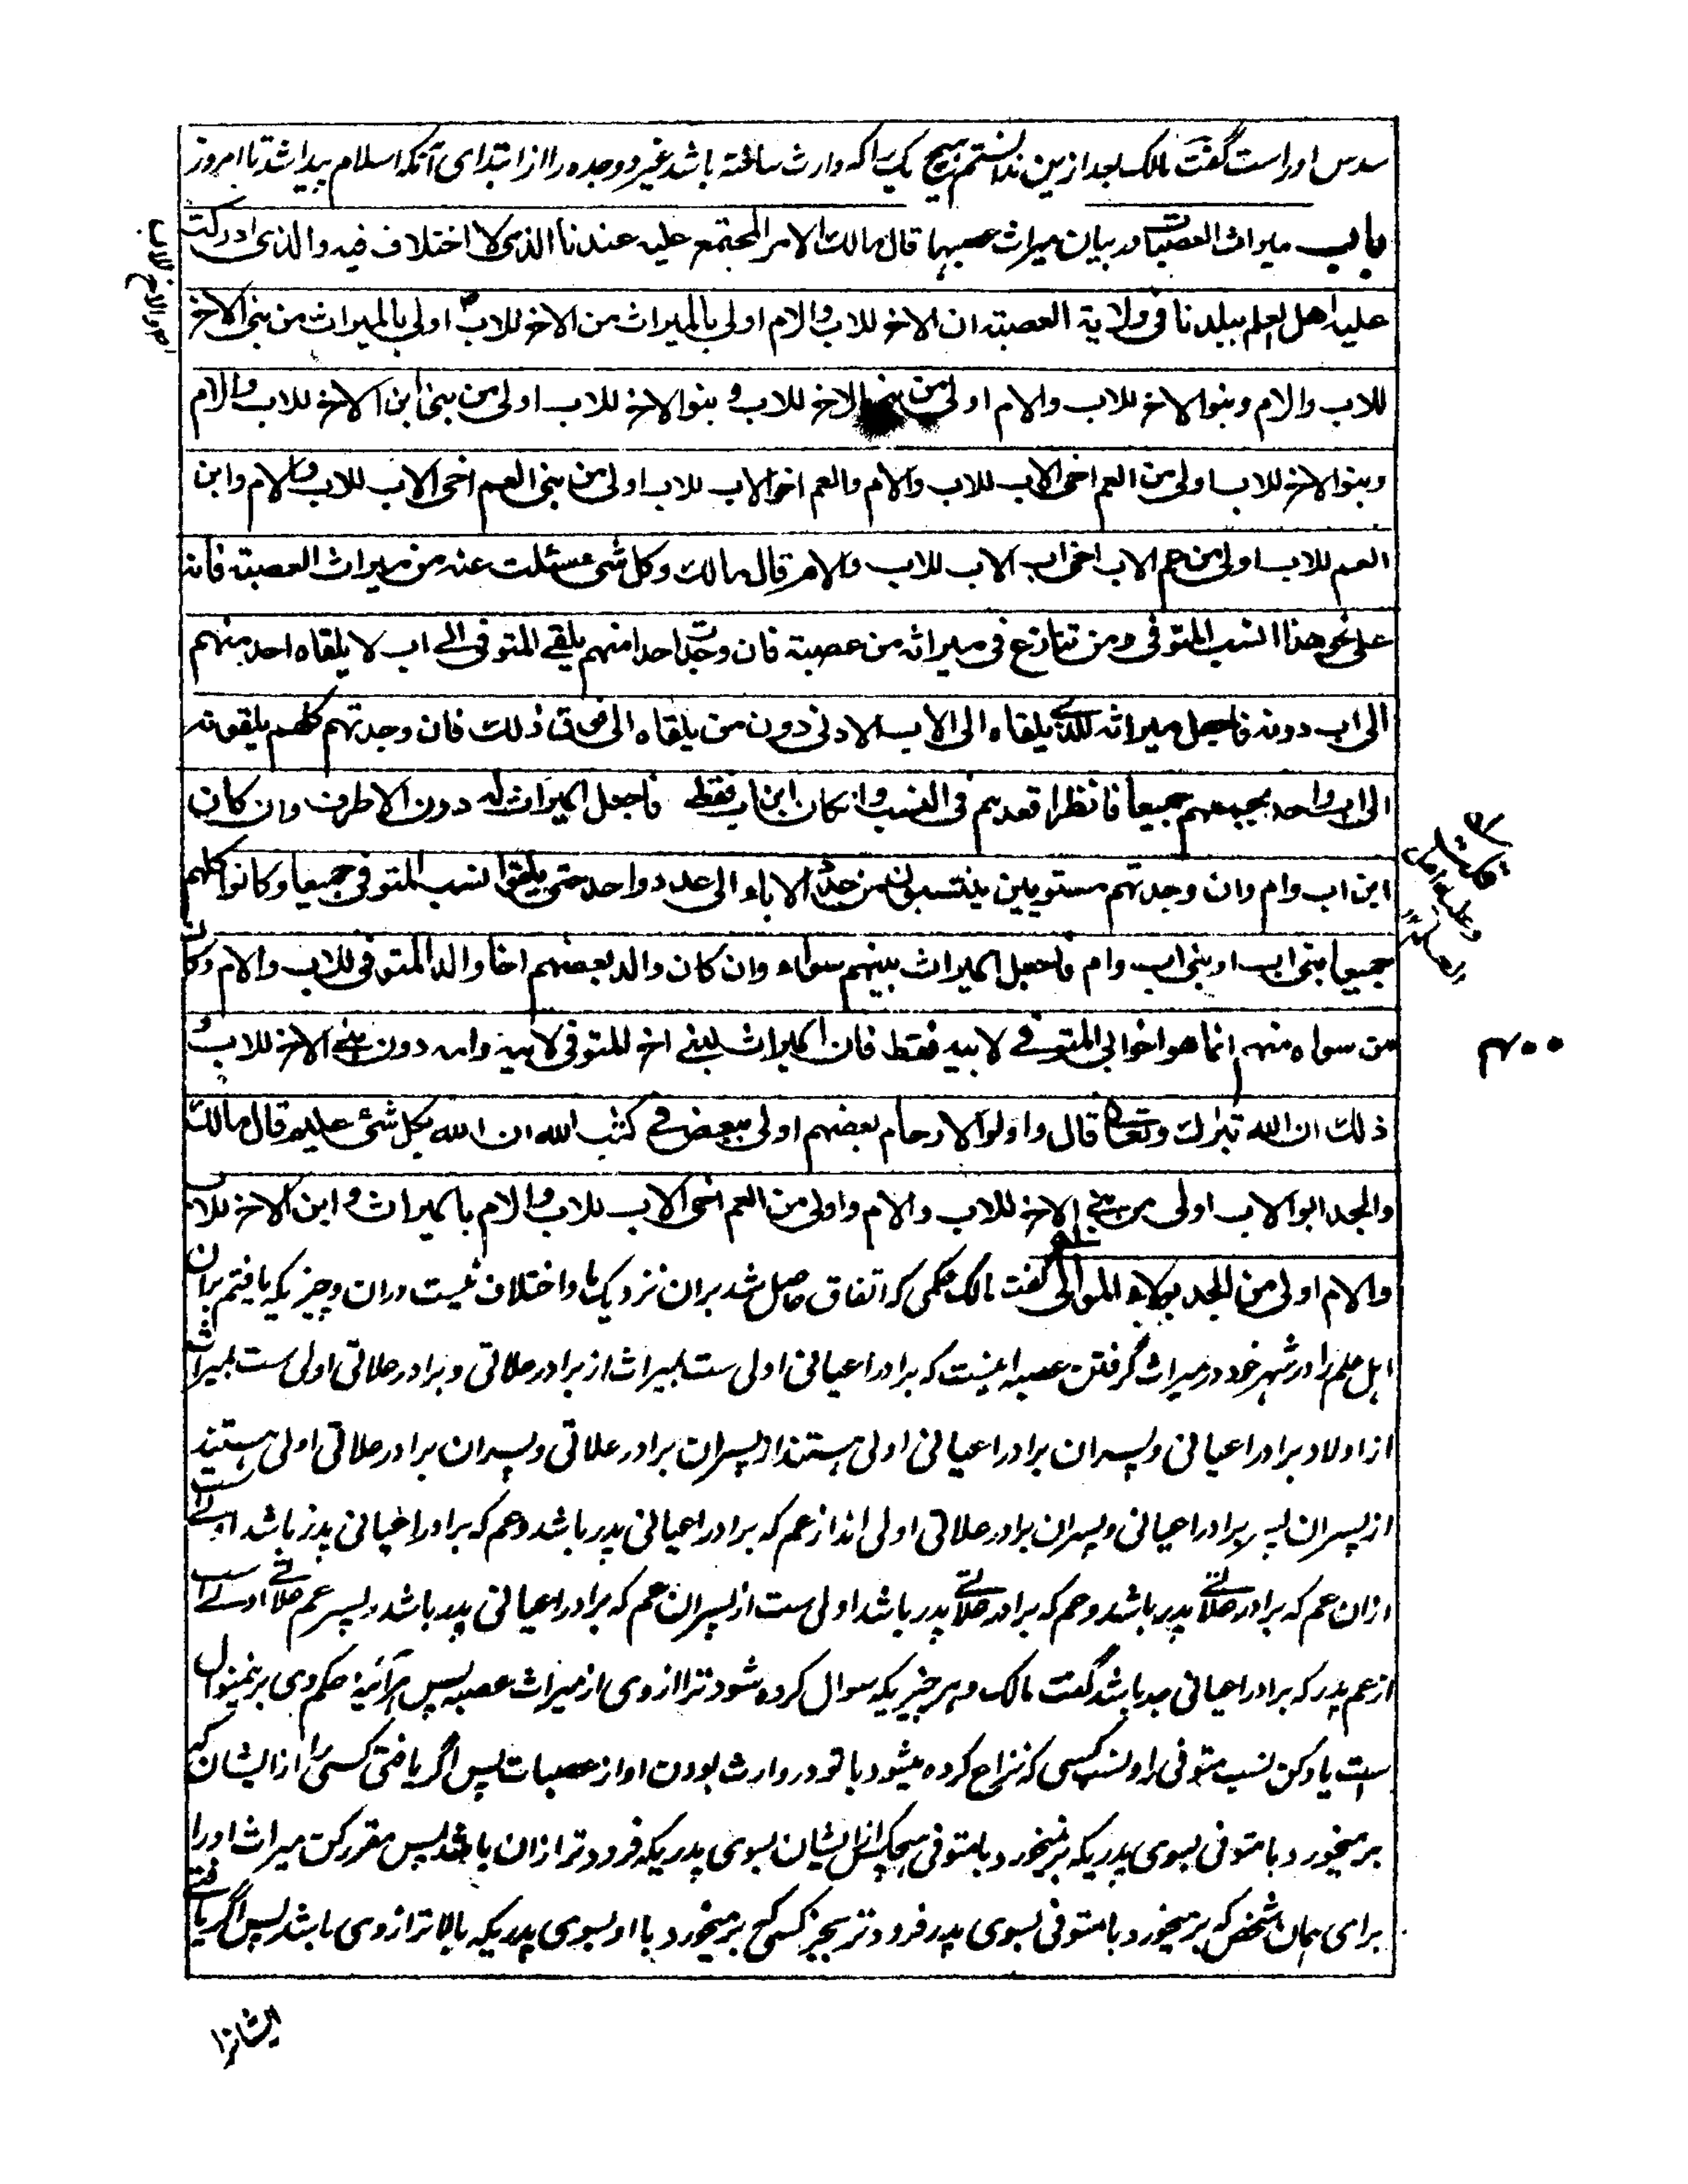 سدس اوراست گفت مالک بعد ازین ندانستم هیچ یک را که وارث ساخته باشد غیر دو جده را از ابتدای آنکه اسلام پیدا شد تا امروز
باب میراث العصبات در بیان میراث عصبها قال مالک الامر المجتمع علیه عندنا الذی لا اختلاف فیه والذی ادرکت
علیه اهل العلم ببلدنا فی ولایة العصبة ان الاخ للاب والام اولی بالمیراث من الاخ للاب اولی بالمیراث من بنی الاخ
والاخ للاب
للاب والام وبنوا الاخ للاب والام اولی من بنی الاخ للاب و بنوا الاخ للاب اولی من بنی ابن الاخ للاب والام
وبنوا الاخ للاب اولی من العم اخی الاب للاب والام والعم اخو الاب للاب اولی من بنی العم اخی الاب للاب والام وابن
العم للاب اولی من عم الاب اخی اب الاب للاب والام قال مالک وکل شیء سئلت عنه من میراث العصبة فانه
علی نحو هذا انسب المتوفی ومن تنازع فی میراثه من عصبة فان وجدت احدا منهم یلقی المتوفی الی اب لا یلقاه احد منهم
الی اب دونه فاجعل میراثه للذی یلقاه الی الاب الادنی دون من یلقاه الی فوق ذلک فان وجدتهم کلهم یلقونه
الی اب واحد یجمعهم جمیعا فانظر اقعدهم فی النسب وان کان ابن اب فقط فاجعل المیراث له دون الاطرف وان کان
ابن اب وام وان وجدتهم مستویین ینتسبون من حدث الاباء الی عدد واحد حتی یلقوا نسب المتوفی جمیعا وکانوا کلهم
جمیعا بنی اب او بنی اب وام فاجعل المیراث بینهم سواء وان کان والد بعضهم اخا والد المتوفی للاب والام وکان
من سواه منهم انما هو اخو ابی المتوفی لابیه فقط فان المیراث لبنی اخ المتوفی لابیه وامه دون بنی الاخ للاب و
ذلک ان الله تبرک وتعالی قال واولوا الارحام بعضهم اولی ببعض فی کتب الله ان الله بکل شیء علیم قال مالک
والجد ابو الاب اولی من بنی الاخ للاب والام واولی من العم اخی الاب للاب والام بالمیراث و ابن الاخ للاب
والام اولی من الجد بولاء الموالی گفت مالک حکمی که اتفاق حاصل شد بران نزدیک ما و اختلاف نیست دران وچیزیکه یافتم بران
اهل علم را در شهر خود در میراث گرفتن عصبه اینست که برادر اعیانی اولی ست بمیراث از برادر علاتی و برادر علاتی اولی ست بمیراث
از اولاد برادر اعیانی و پسران برادر اعیانی اولی هستند از پسران برادر علاتی و پسران برادر علاتی اولی هستند
از پسران پسر برادر اعیانی و پسران برادر علاتی اولی اند از عم که برادر اعیانی پدر باشد و عم که برادر اعیانی پدر باشد اولی ست
ازان عم که برادر علاتی پدر باشد و عم که برادر علاتی پدر باشد اولی ست از پسران عم که برادر اعیانی پدر باشد و پسر عم علاتی اولی ست
از عم پدر که برادر اعیانی جد باشد گفت مالک و هر چیزیکه سوال کرده شود ترا از وی از میراث عصبه پس هرآئینه حکم وی برینمنوال
ست یاد کن نسب متوفی را و نسب کسی که نزاع کرده میشود با تو در وارث بودن او از عصبات پس اگر یافتی کسی را از ایشان که
برمیخورد با متوفی بسوی پدریکه برنمیخورد با متوفی هیچکس از ایشان بسوی پدریکه فرودتر ازان باشد پس مقرر کن میراث او را
برای همان شخص که برمیخورد با متوفی بسوی پدر فرودتر بجز کسی که برمیخورد با او بسوی پدریکه بالاتر از وی باشد پس اگر یافتی
ایشانرا